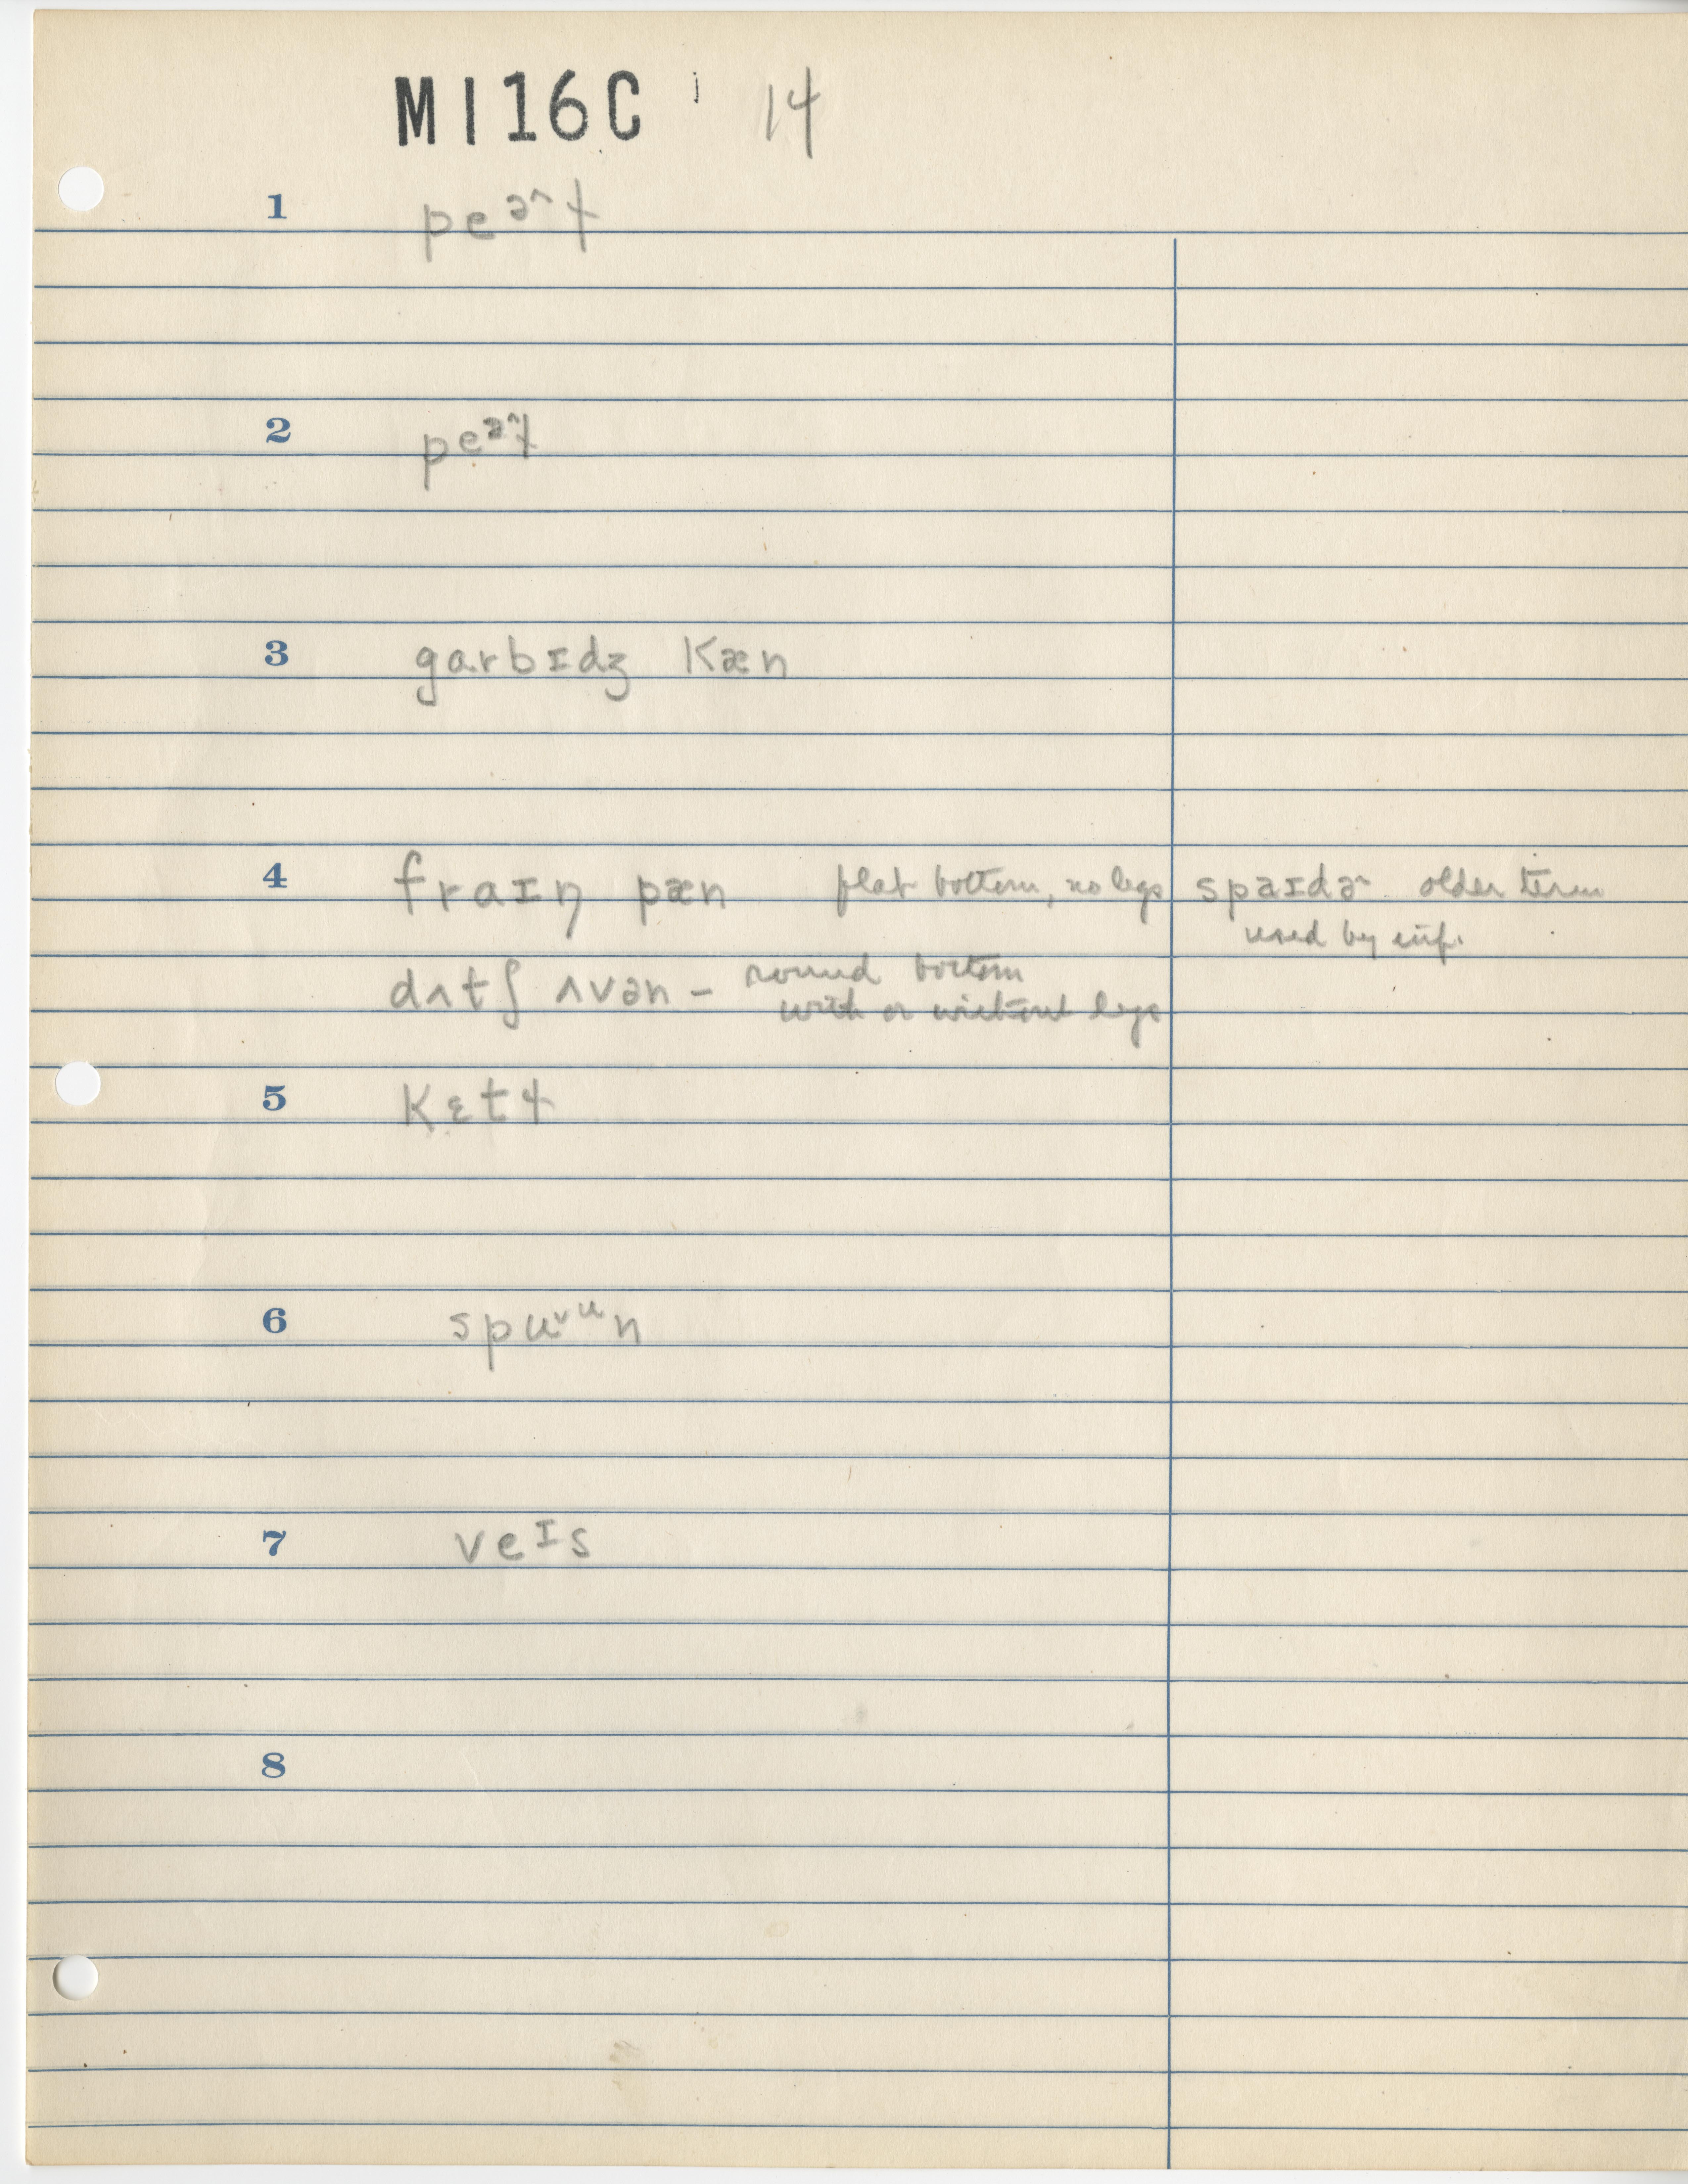 MI16C 14
1 peᵊ^ɫ
2 peᵊ^ɫ
3 garbɪdʒ kæn
4 fraɪŋ pæn flat bottom, no legs spaɪdɚ older term
used by inf.
dʌtʃ ʌvən – round bottom
with or without legs
5 kɛtɫ
6 spuᵛᵘn
7 veᶦs
8